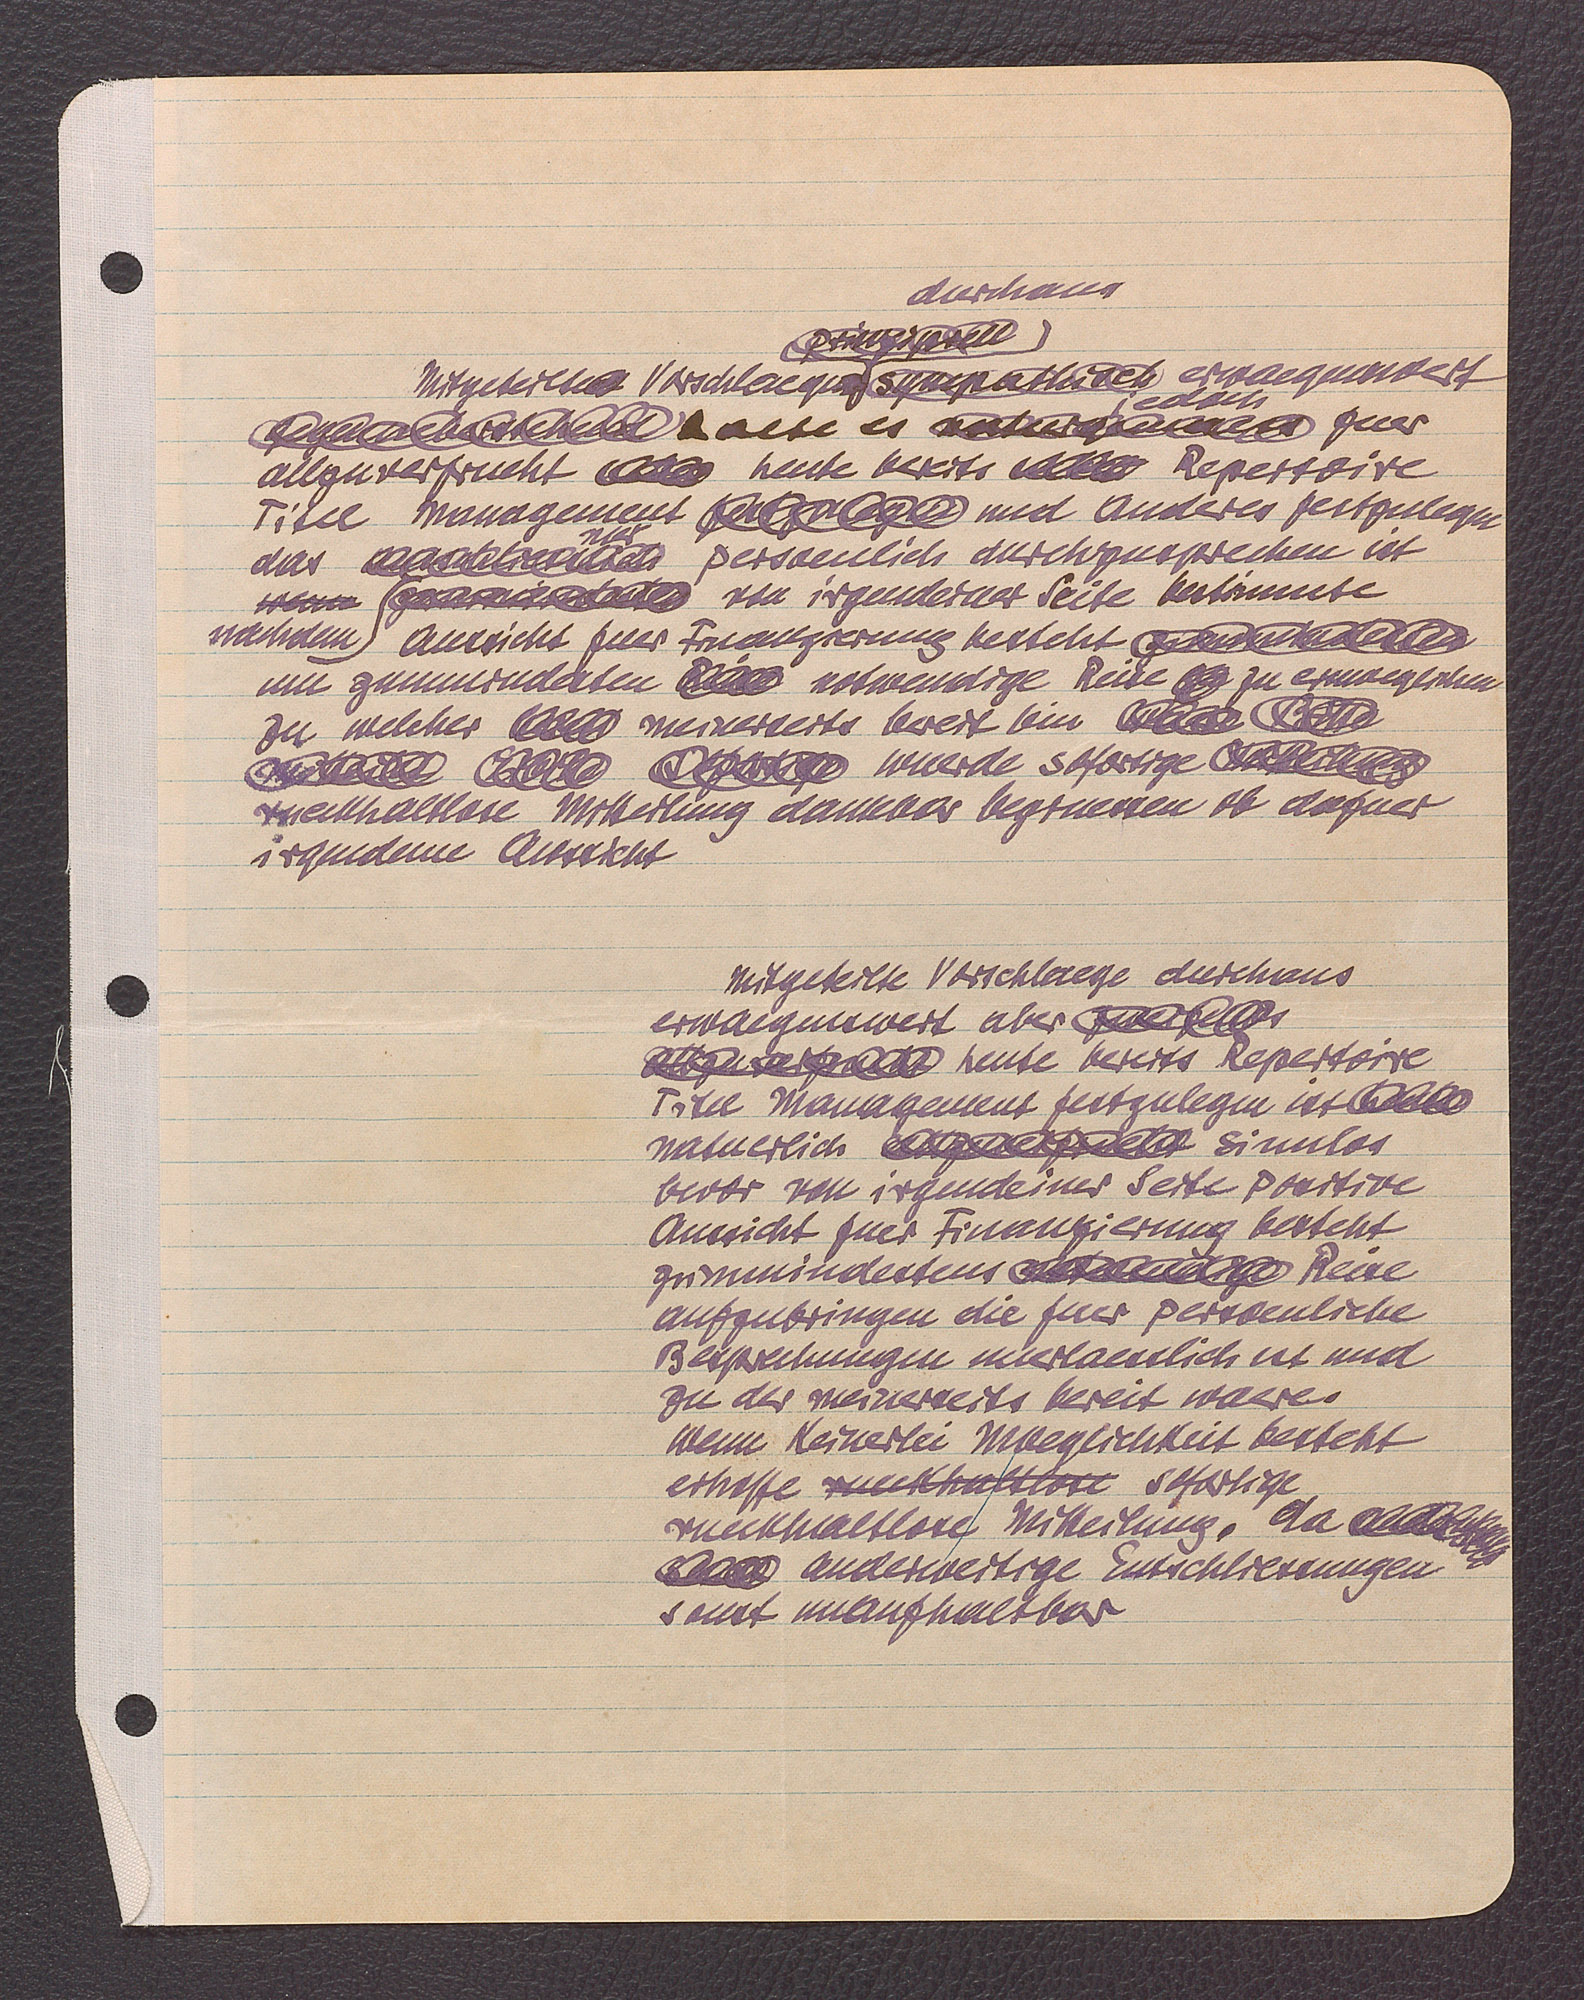 durchaus
prinzipiell
Mitgeteilte Vorschlaege sympathisch erwaegenswert
halte es jedoch fuer
allzuverfrueht heute bereits Repertoire
Titel Management und Anderes festzulegen
das nur persoenlich durchzusprechen ist
wenn von irgendeiner Seite bestimmte
nachdem Aussicht fuer Finanzierung besteht
um zumindesten notwendige Reise zu ermoeglichen
zu welcher meinerseits bereit bin
wuerde sofortige
rueckhaltlose Mitteilung dankbar begruessen ob dafuer
irgendeine Aussicht
Mitgeteilte Vorschlaege durchaus
erwaegenswert aber
allzuverfrueht heute bereits Repertoire
Titel Management festzulegen ist
natuerlich allzuverfrueht sinnlos
bevor von irgendeiner Seite positive
Aussicht fuer Finanzierung besteht
zumindestens notwendige Reise
aufzubringen die fuer persoenliche
Besprechungen unerlaesslich ist und
zu der meinerseits bereit waere.
Wenn keinerlei Moeglichkeit besteht
erhoffe rueckhaltlose sofortige
rueckhaltlose Mitteilung. Da
anderweitige Entschliessungen
sonst unaufhaltbar